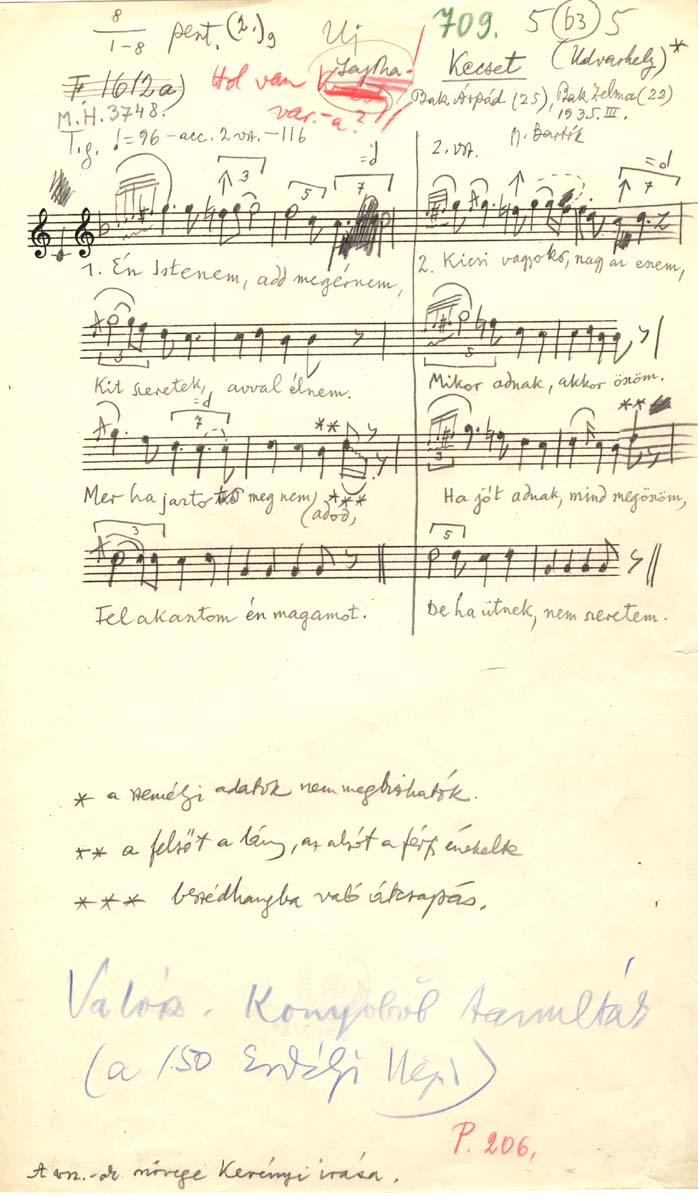 8
1-8 pent. (2.)9 Új 709. 5 (b3) 5
F 1612a) Hol van Lajtha- Kecset (Udvarhely)*
M.H. 3748. var.-a? Bak Árpád (25), Bak Zelma (22)
1935. III.
T.g. ♩=96 – acc. 2 vsz. – 116 2. vsz. Bartók
3 5 7 7
1. Én Istenem, add megérnem, 2. Kicsi vagyok, nagy az eszem,
3 5
Kit szeretek, avval élnem. Mikor adnak, akkor öszöm.
7 ** 3 **
Mer ha jartó meg nem, *** Ha jót adnak, mind megöszöm,
(adod,
3 5
Felakasztom én magamot. De ha ütnek, nem szeretem.
* a személyi adatok nem megbízhatók.
** a felsőt a lány, az alsót a férfi énekelte
*** beszédhangba való átcsapás.
Valós. Könyvből tanulták
(a 150 Erdélyi Népd)
P. 206.
A vsz.-ok szövege Kerényi írása.